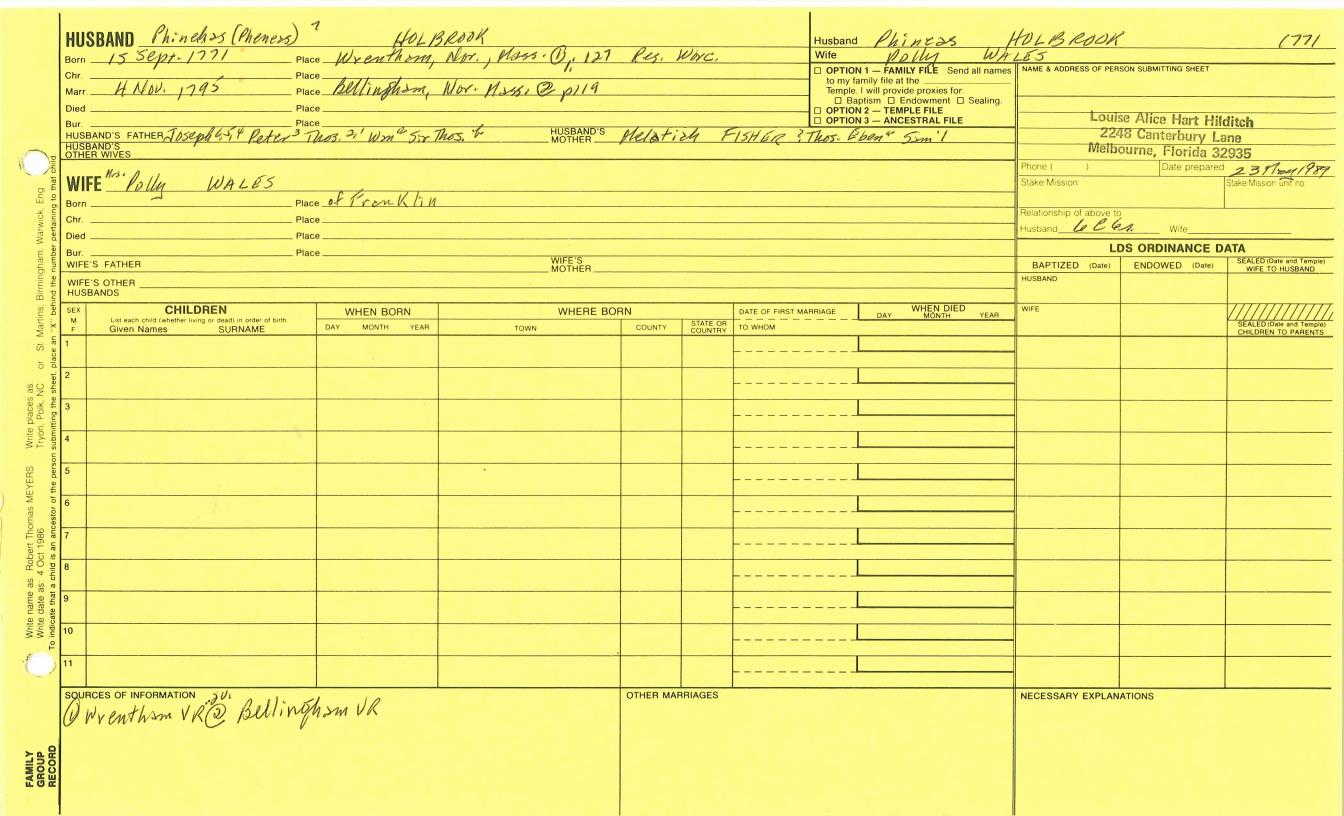 HUSBAND Phinehas (Pheneas) 7 HOLBROOK
Born 15 Sept. 1771 Place Wrentham, Nor., Mass. ①, 127 Res. Worc.
Chr. Place
Marr 4 Nov. 1795 Place Bellingham, Nor. Mass. ② p119
Died Place
Bur. Place
HUSBAND'S FATHER Joseph 6-5-4 Peter 3 Thos. 2,1 Wm Sir Thos. HUSBAND'S MOTHER FISHER Thos. Eben Sam'l
HUSBAND'S OTHER WIVES
Husband Phineas HOLBROOK 1771
Wife Polly WALES
☐ OPTION 1 — FAMILY FILE Send all names
to my family file at the
Temple. I will provide proxies for
☐ Baptism ☐ Endowment ☐ Sealing.
☐ OPTION 2 — TEMPLE FILE
☐ OPTION 3 — ANCESTRAL FILE
NAME & ADDRESS OF PERSON SUBMITTING SHEET
Louise Alice Hart Hilditch
2248 Canterbury Lane
Melbourne, Florida 32935
Phone ( ) Date prepared 23 May 1989
Stake Mission Stake Mission unit no.
Relationship of above to
Husband 6C6r. Wife
WIFE Mrs. Polly WALES
Born Place of Franklin
Chr. Place
Died Place
Bur. Place
WIFE'S FATHER WIFE'S MOTHER
WIFE'S OTHER HUSBANDS
LDS ORDINANCE DATA
BAPTIZED (Date) ENDOWED (Date) SEALED (Date and Temple) WIFE TO HUSBAND
HUSBAND
WIFE
SEALED (Date and Temple) CHILDREN TO PARENTS
SEX M F
CHILDREN
List each child (whether living or dead) in order of birth
Given Names SURNAME
WHEN BORN
DAY MONTH YEAR
WHERE BORN
TOWN COUNTY STATE OR COUNTRY
DATE OF FIRST MARRIAGE
TO WHOM
WHEN DIED
DAY MONTH YEAR
1
2
3
4
5
6
7
8
9
10
11
SOURCES OF INFORMATION
① Wrentham VR ② Bellingham VR
OTHER MARRIAGES
NECESSARY EXPLANATIONS
Write name as Robert Thomas MEYERS Write places as Tryon, Polk, NC or St. Martins, Birmingham, Warwick, Eng
Write date as 4 Oct 1986
To indicate that a child is an ancestor of the person submitting the sheet, place an "X" behind the number pertaining to that child.
FAMILY
GROUP
RECORD